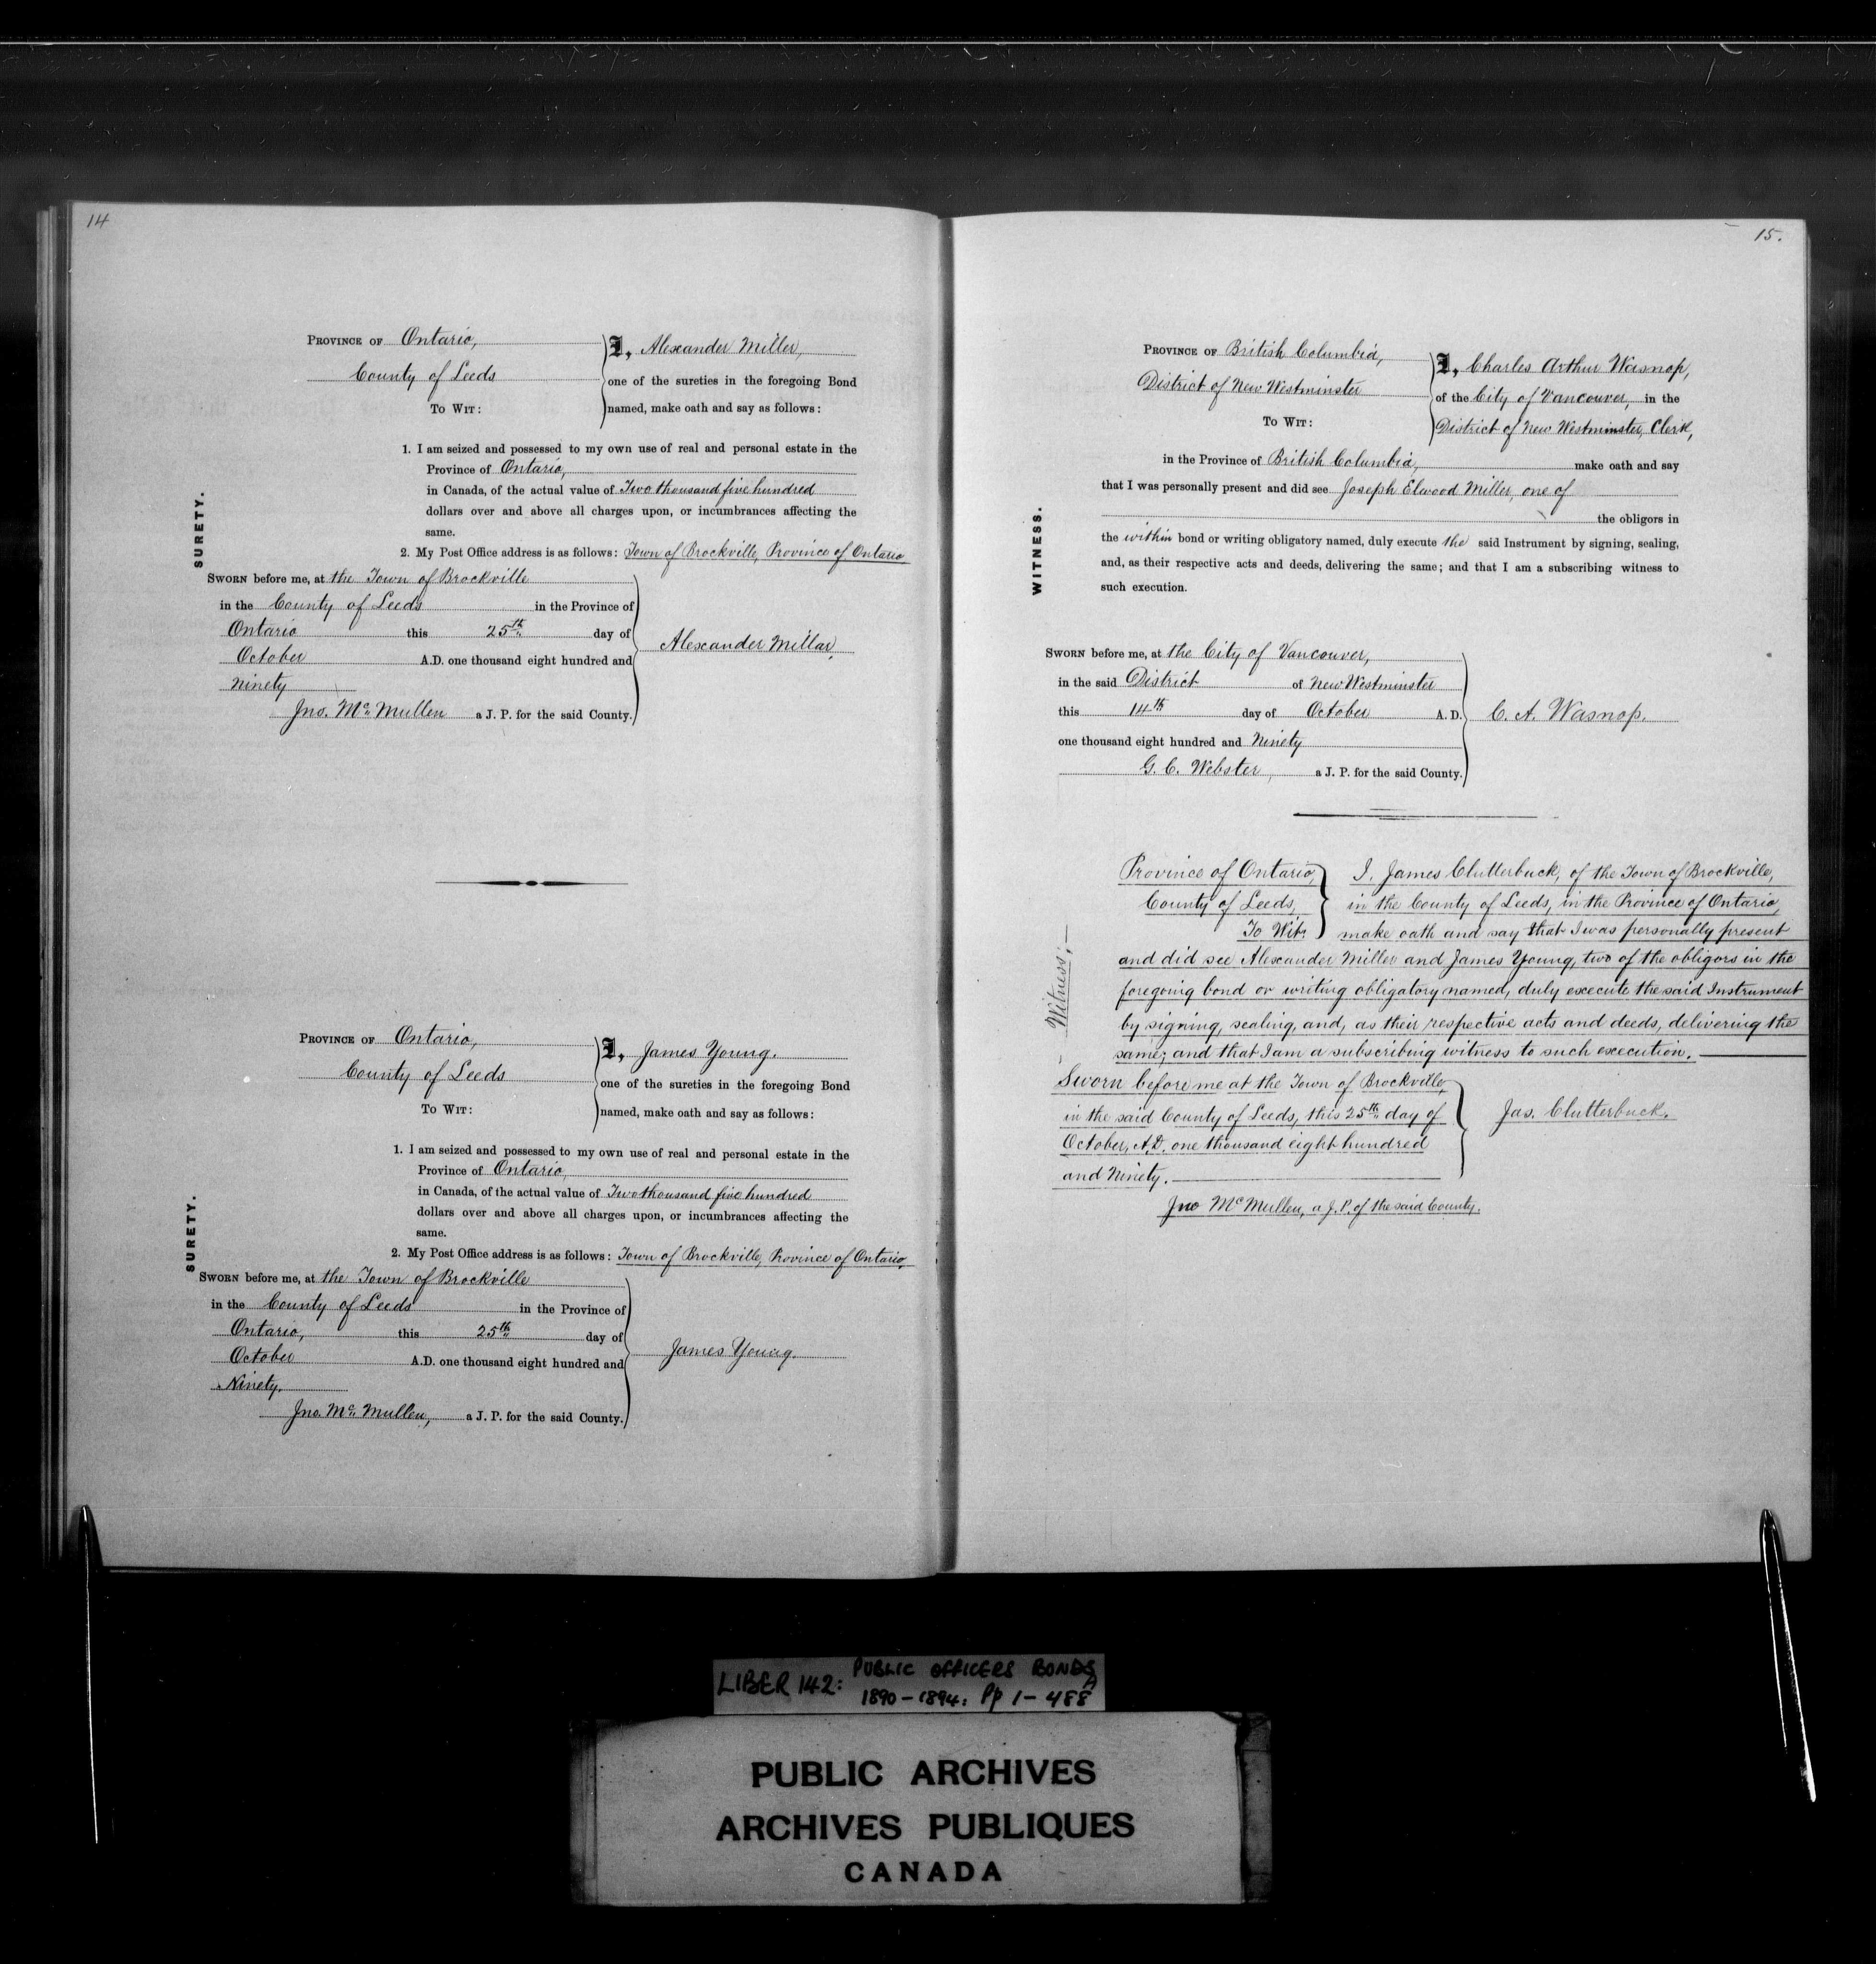 14
PROVINCE OF Ontario,
County of Leeds
TO WIT:
I, Alexander Miller,
one of the sureties in the foregoing Bond
named, make oath and say as follows:
SURETY.
1. I am seized and possessed to my own use of real and personal estate in the
Province of Ontario,
in Canada, of the actual value of Two thousand five hundred
dollars over and above all charges upon, or incumbrances affecting the
same.
2. My Post Office address is as follows: Town of Brockville, Province of Ontario
SWORN before me, at the Town of Brockville
in the County of Leeds in the Province of
Ontario this 25th day of
October A.D. one thousand eight hundred and
Ninety
Jno. Mc Mullen a J. P. for the said County.
Alexander Millar
PROVINCE OF Ontario,
County of Leeds
TO WIT:
I, James Young.
one of the sureties in the foregoing Bond
named, make oath and say as follows:
SURETY.
1. I am seized and possessed to my own use of real and personal estate in the
Province of Ontario,
in Canada, of the actual value of Two thousand five hundred
dollars over and above all charges upon, or incumbrances affecting the
same.
2. My Post Office address is as follows: Town of Brockville, Province of Ontario,
SWORN before me, at the Town of Brockville
in the County of Leeds in the Province of
Ontario, this 25th day of
October A.D. one thousand eight hundred and
Ninety.
Jno. Mc Mullen, a J. P. for the said County.
James Young.
15.
PROVINCE OF British Columbia,
District of New Westminster
TO WIT:
I, Charles Arthur Wasnop,
of the City of Vancouver, in the
District of New Westminster, Clerk,
WITNESS.
in the Province of British Columbia, make oath and say
that I was personally present and did see Joseph Elwood Miller, one of
the obligors in
the within bond or writing obligatory named, duly execute the said Instrument by signing, sealing,
and, as their respective acts and deeds, delivering the same; and that I am a subscribing witness to
such execution.
SWORN before me, at the City of Vancouver,
in the said District of New Westminster
this 14th day of October A.D.
one thousand eight hundred and Ninety
G. C. Webster, a J. P. for the said County.
C. A. Wasnop.
Province of Ontario,
County of Leeds,
To Wit:
Witness;—
I, James Clutterbuck, of the Town of Brockville,
in the County of Leeds, in the Province of Ontario,
make oath and say that I was personally present
and did see Alexander Miller and James Young, two of the obligors in the
foregoing bond or writing obligatory named, duly execute the said Instrument
by signing, sealing, and, as their respective acts and deeds, delivering the
same; and that I am a subscribing witness to such execution.
Sworn before me at the Town of Brockville,
in the said County of Leeds, this 25th day of
October, A.D. one thousand eight hundred
and Ninety.
Jno McMullen, a J. P. of the said County.
Jas. Clutterbuck.
LIBER 142: PUBLIC OFFICERS BONDS
1890-1894: Pp 1-488A
PUBLIC ARCHIVES
ARCHIVES PUBLIQUES
CANADA